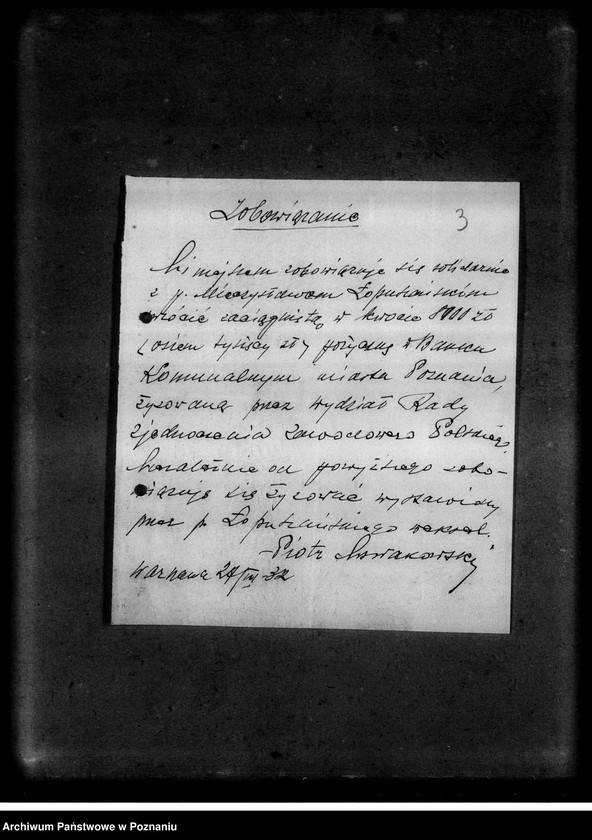 Zobowiązanie
3
Niniejszem zobowiązuję się solidarnie
z p. Mieczysławem Łopuszańskim
zwrócić zaciągniętą w kwocie 8000 zł
(osiem tysięcy zł) pożyczkę w Banku
Komunalnym miasta Poznania,
żyrowaną przez wydział Rady
Zjednoczenia Zawodowego Polskiego
Niezależnie od powyższego zobo-
wiązuję się żyrować wystawiony
przez p. Łopuszańskiego weksel.
Piotr Nowakowski
Warszawa 32
Archiwum Państwowe w Poznaniu